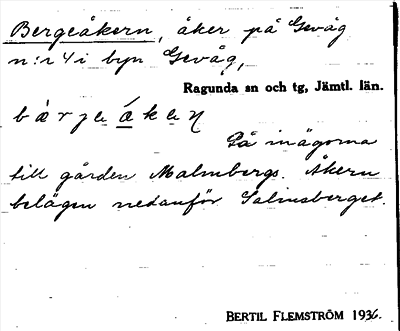 Bergeåkern, åker på Gevåg
n:r 4 i byn Gevåg,
Ragunda sn och tg, Jämtl. län.
På inägorna
till gården Malmbergs. Åkern
belägen nedanför Salmsberget.
BERTIL FLEMSTRÖM 1936.